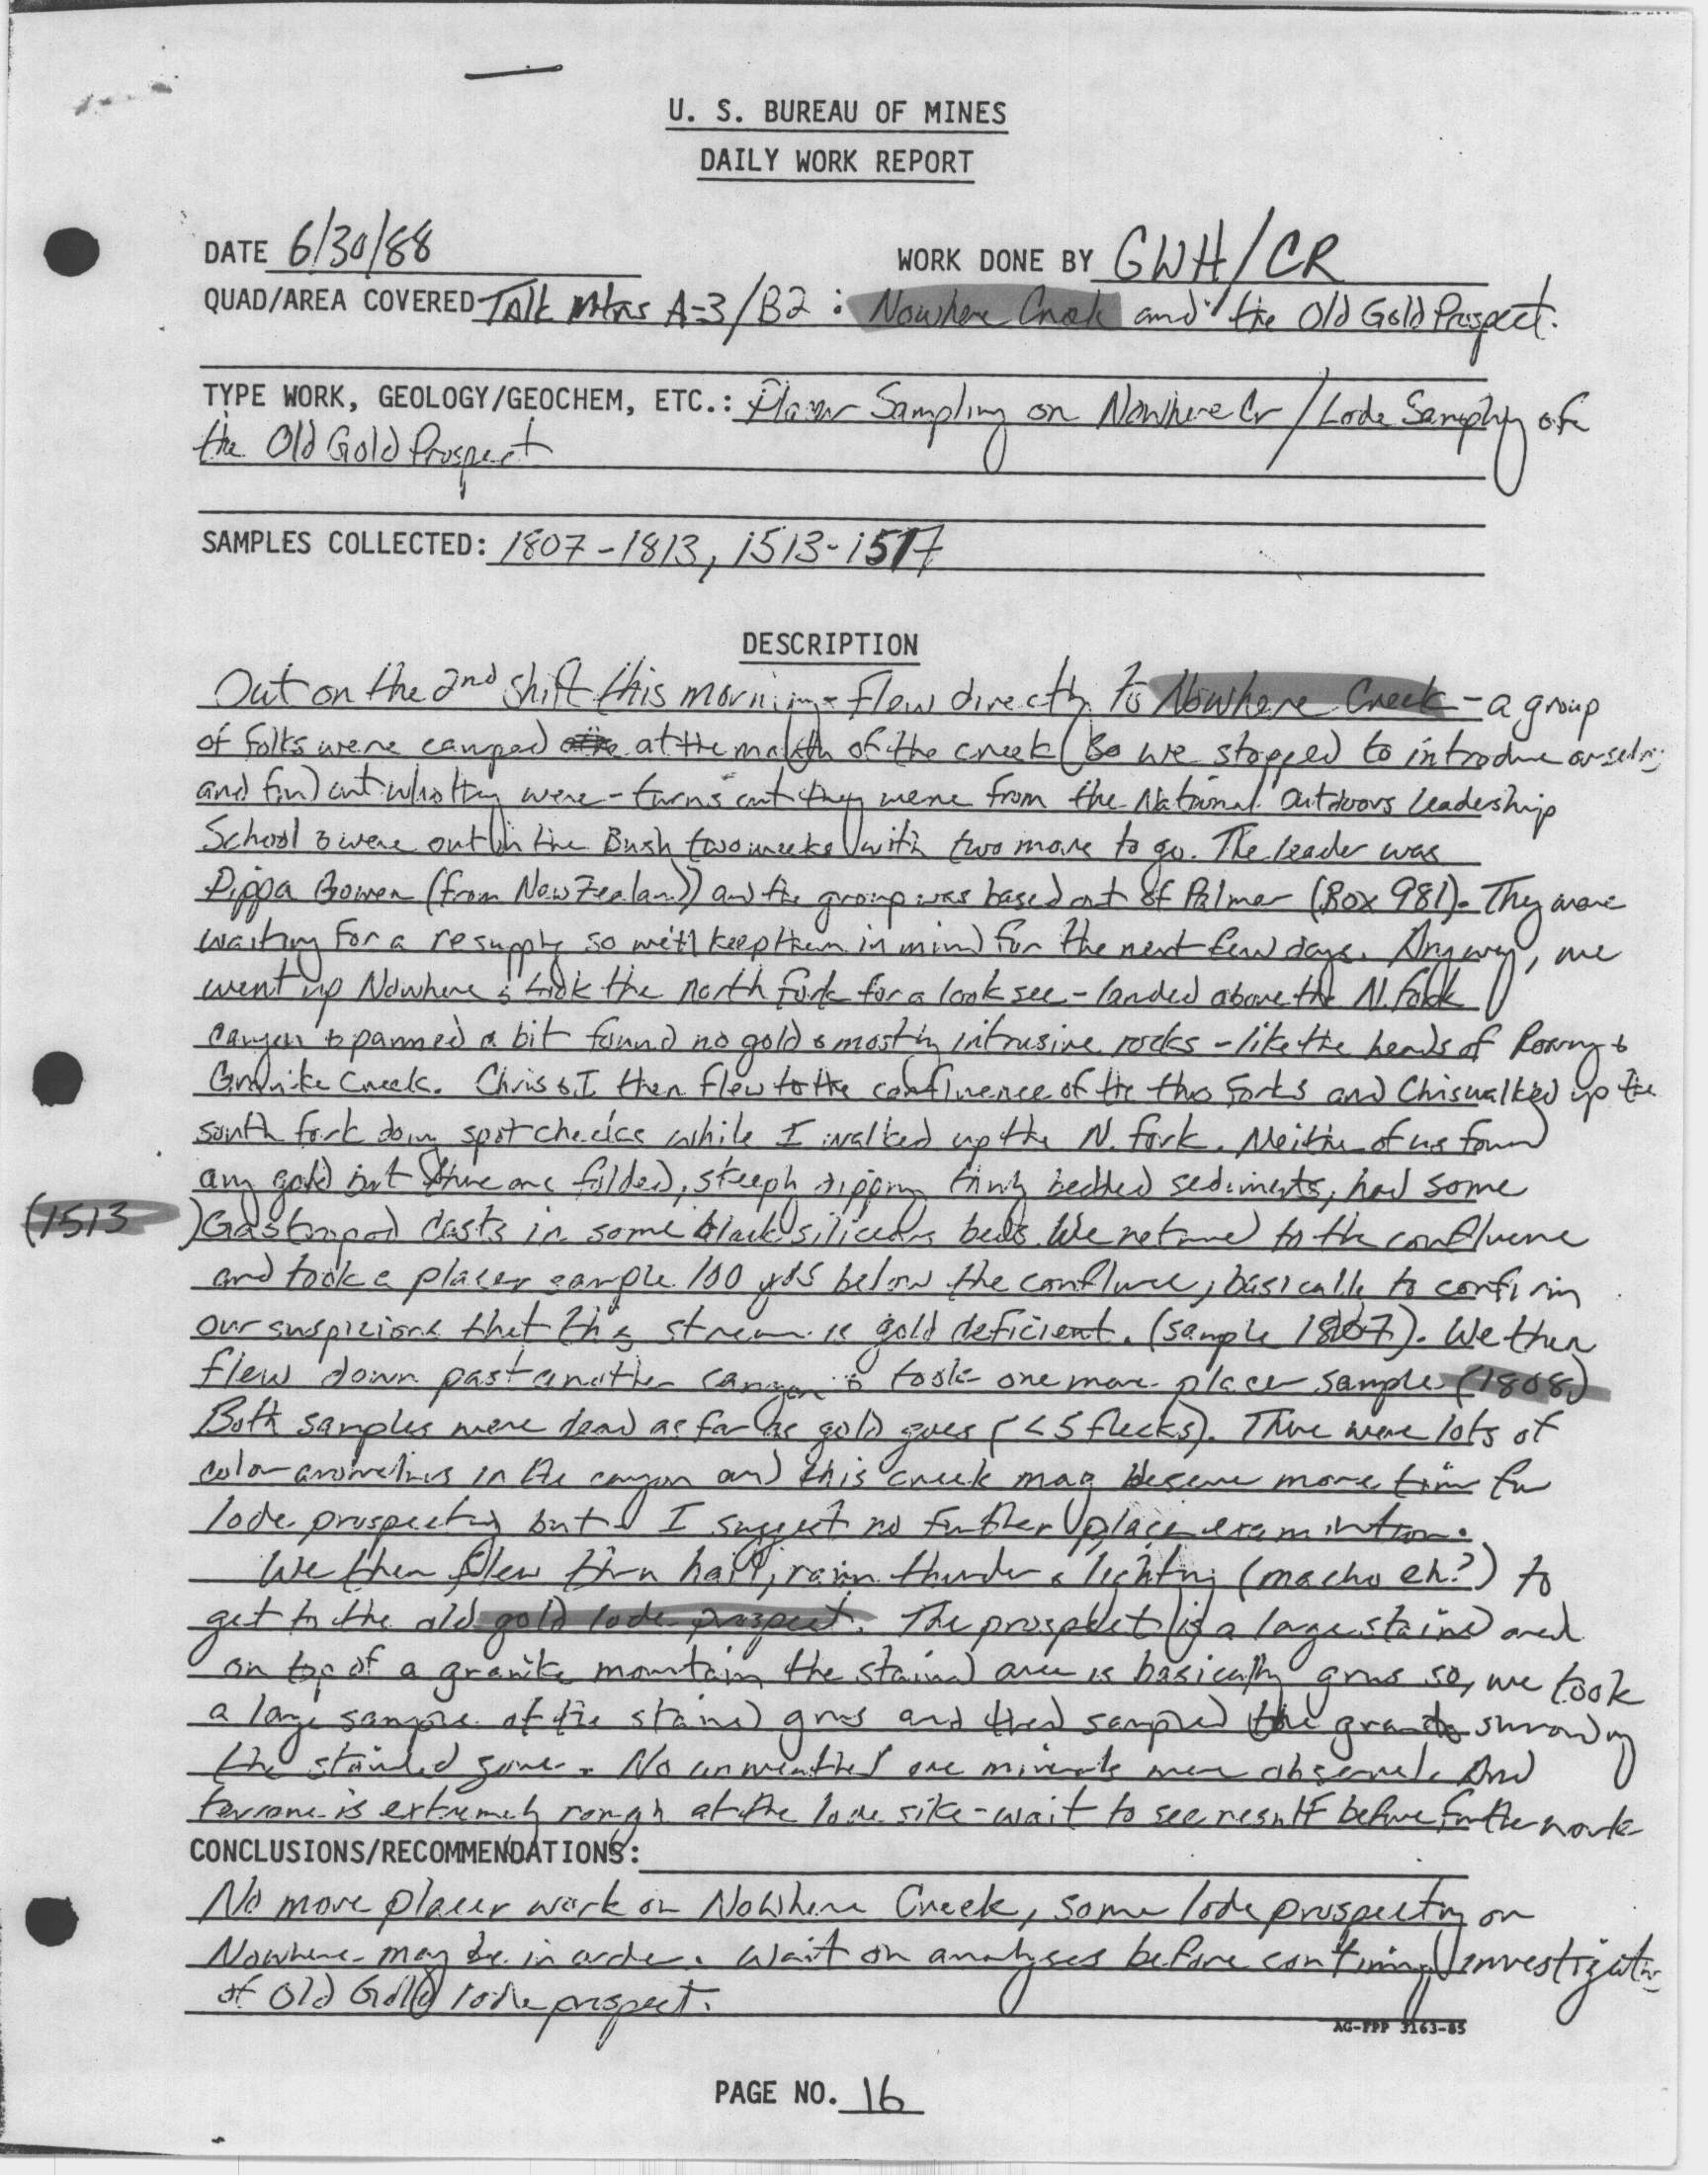 U. S. BUREAU OF MINES
DAILY WORK REPORT
DATE 6/30/88 WORK DONE BY GWH/CR
QUAD/AREA COVERED Talk Mtns A-3/B2 : Nowhere Creek and the Old Gold Prospect.
TYPE WORK, GEOLOGY/GEOCHEM, ETC.: Placer Sampling on Nowhere Cr / Lode Sampling of
the Old Gold Prospect
SAMPLES COLLECTED: 1807-1813, 1513-1517
DESCRIPTION
Out on the 2nd shift this morning - flew directly to Nowhere Creek - a group
of folks were camped at the mouth of the creek so we stopped to introduce ourselves
and find out who they were - turns out they were from the National Outdoors Leadership
School & were out in the Bush two weeks with two more to go. The leader was
Pippa Bowen (from New Zealand) and the group was based out of Palmer (Box 981). They were
waiting for a resupply so we'll keep them in mind for the next few days. Anyway, we
went up Nowhere & took the north fork for a look see - landed above the N. Fork
canyon & panned a bit found no gold & mostly intrusive rocks - like the heads of Roaring &
Granite Creek. Chris & I then flew to the confluence of the two forks and Chris walked up the
south fork doing spot checks while I walked up the N. Fork. Neither of us found
any gold but there are folded, steeply dipping thinly bedded sediments, had some
(1513) Gastropod casts in some black siliceous beds. We returned to the confluence
and took a placer sample 100 yds below the confluence, basically to confirm
our suspicions that this stream is gold deficient. (sample 1807). We then
flew down past another canyon & took one more placer sample (1808)
Both samples were dead as far as gold goes (<5 flecks). There were lots of
color anomalies in the canyon and this creek may deserve more time for
lode prospecting but I suggest no further placer examination.
We then flew thru hail, rain thunder & lightning (macho eh?) to
get to the old gold lode prospect. The prospect is a large stained area
on top of a granite mountain the stained area is basically grus so, we took
a large sample of the stained grus and then sampled the granite surrounding
the stained zone. No unweathered ore minerals were observed. And
terrane is extremely rough at the lode site - wait to see result before further work
CONCLUSIONS/RECOMMENDATIONS:
No more placer work on Nowhere Creek, some lode prospecting on
Nowhere may be in order. Wait on analyses before continuing investigation
of Old Gold lode prospect.
AG-FPP 3163-85
PAGE NO. 16